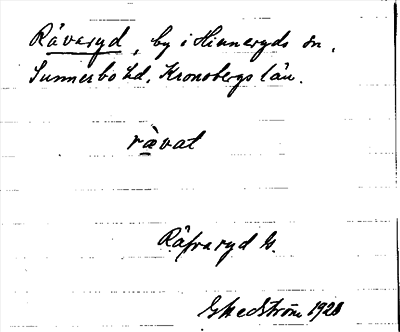 Råvaryd, by i Hinneryds sn,
Sunnerbo hd, Kronobergs län.
rävat
Råfvaryd G.
Ekedström 1928